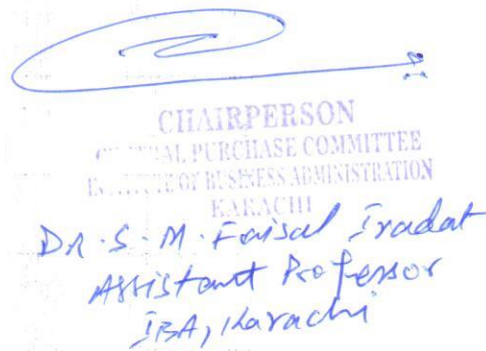 CHAIRPERSON
PURCHASE COMMITTEE
OF BUSINESS ADMINISTRATION
KARACHI
DR. S. M. Faisal Iradat
Assistant Professor
IBA, Karachi